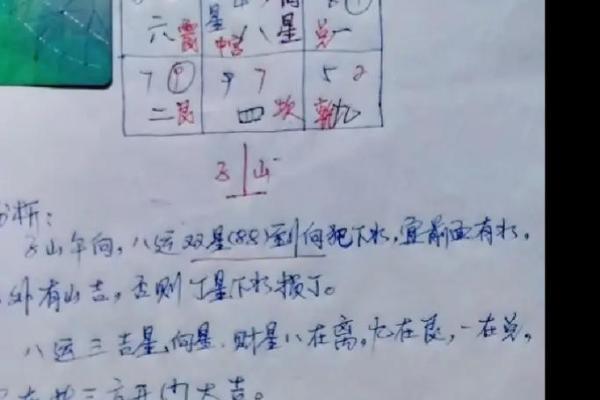 星 星
六震 中宫 八 兑一
7 9 9 7 5 2
二艮 四坎 乾九
子 山
分析：
子山午向，八运双星(88)到向犯下水，宜前面有水，
外有山吉，否则丁星下水损丁。
八运三吉星，向星，财星八在离，九在艮，一在兑，
在此三方开门大吉。